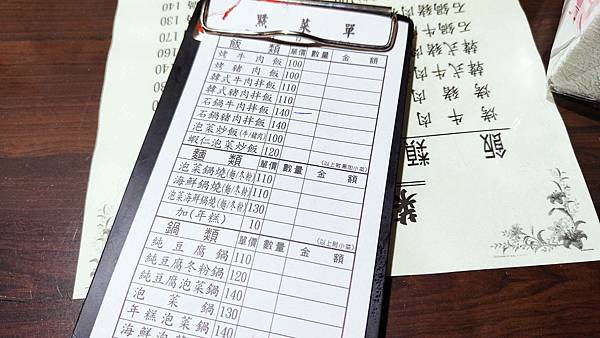 點菜單
飯類 單價 數量 金額
烤牛肉飯 100
烤豬肉飯 100
韓式牛肉拌飯 110
韓式豬肉拌飯 110
石鍋牛肉拌飯 140
石鍋豬肉拌飯 140
泡菜炒飯(牛/豬肉) 100
蝦仁泡菜炒飯 120
(以上附果加小菜)
麵類 單價 數量 金額
泡菜鍋燒(麵/冬粉) 110
海鮮鍋燒(麵/冬粉) 110
泡菜海鮮鍋燒(麵/冬粉) 130
加(年糕) 10
(以上附小菜)
鍋類 單價 數量 金額
純豆腐鍋 110
純豆腐冬粉鍋 120
純豆腐泡菜鍋 140
泡菜鍋 130
年糕泡菜鍋 140
海鮮泡菜
飯類
烤牛肉
烤豬肉
韓式牛肉
韓式豬肉
石鍋牛
石鍋豬肉
140
130
160
170
120
120